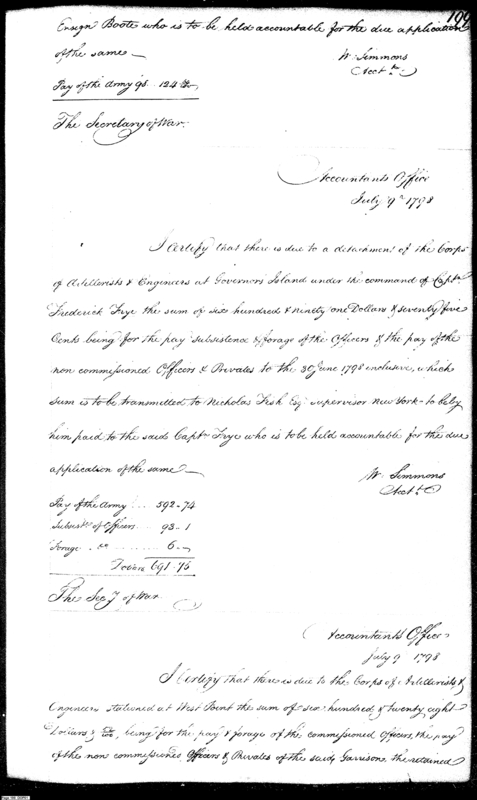 199
Ensign Boote who is to be held accountable for the due application
of the same —
W. Simmons
Acct.
Pay of the Army 98. 124
The Secretary of War.
Accountants Office
July 9th 1798
I Certify that there is due to a detachment of the Corps
of Artillerists & Engineers at Governors Island under the command of Captn
Frederick Frye the sum of six hundred & ninety one Dollars & seventy five
Cents being for the pay subsistence & forage of the Officers & the pay of the
non commissioned Officers & Privates to the 30 June 1798 inclusive, which
sum is to be transmitted to Nicholas Fish Esq. supervisor New York - to be by
him paid to the said Captn Frye who is to be held accountable for the due
application of the same —
W. Simmons
Acct.
Pay of the Army ... 592-74
Subsce of Officers ... 93-1
Forage .. do ........ 6-
Dollars 691-75
The Secy of War
Accountants Office
July 9 1798
I Certify that there is due to the Corps of Artillerists &
Engineers stationed at West Point the sum of six hundred & twenty eight
Dollars & being for the pay & forage of the commissioned Officers, the pay
of the non commissioned Officers & Privates of the said Garrison the retained